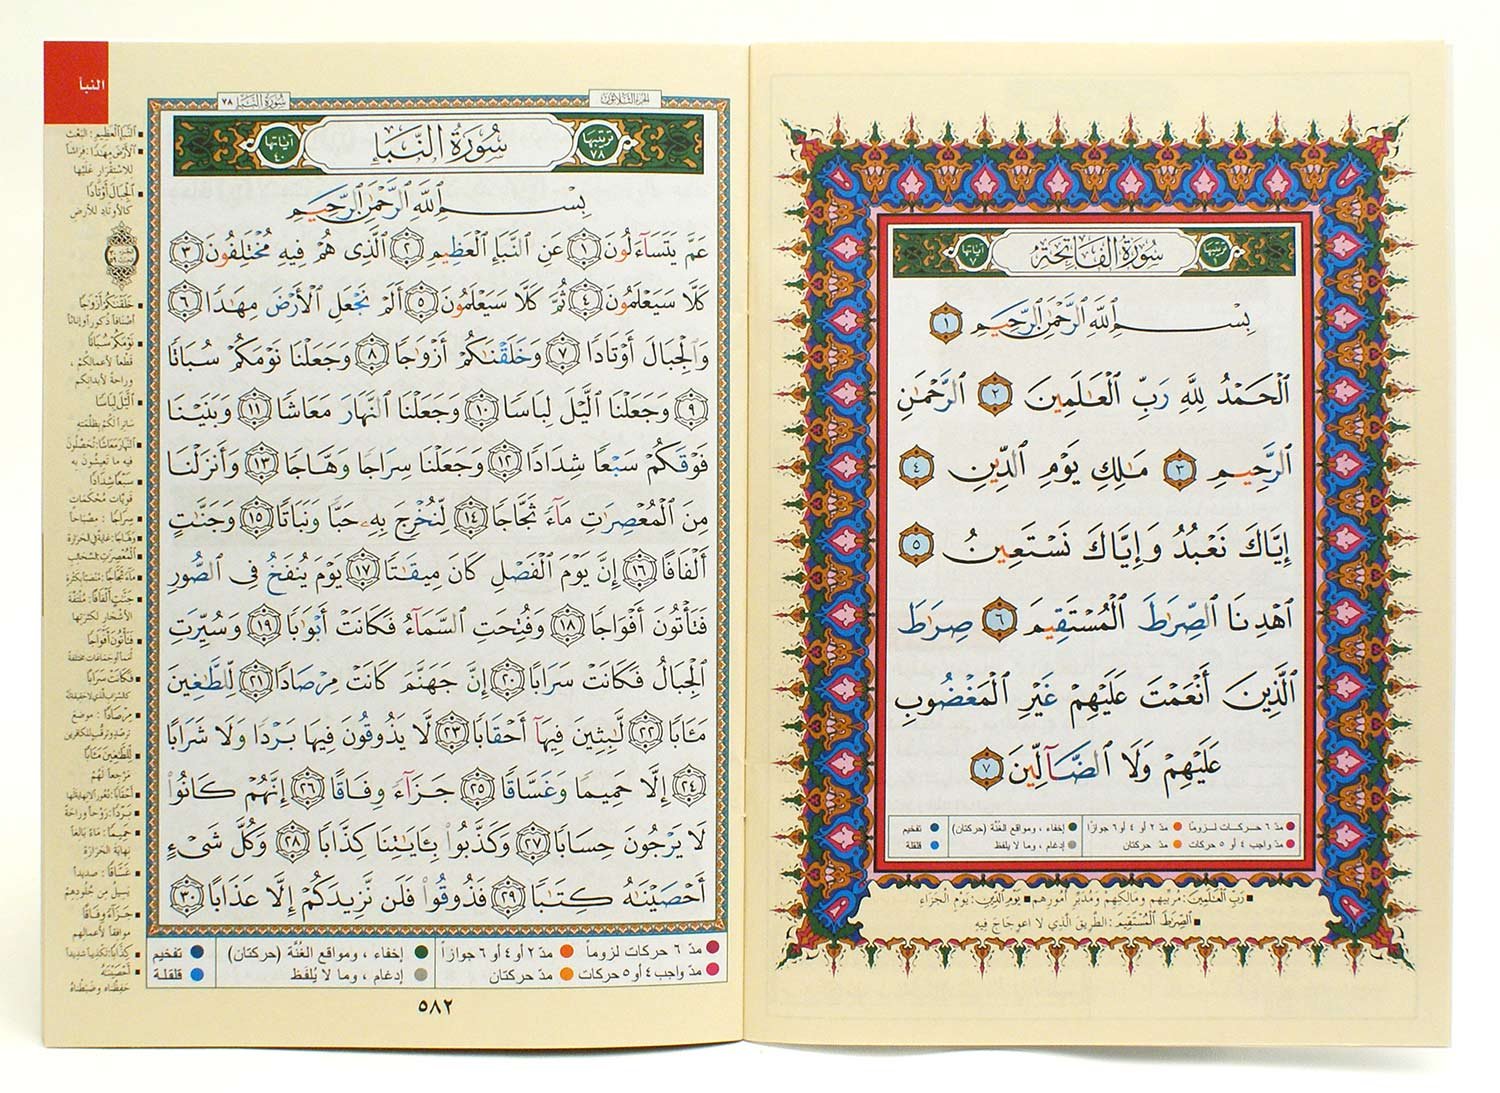 سُورَةُ الفَاتِحَة
ترتيبها ١
آياتها ٧
بِسْمِ ٱللَّهِ ٱلرَّحْمَٰنِ ٱلرَّحِيمِ ١
ٱلْحَمْدُ لِلَّهِ رَبِّ ٱلْعَٰلَمِينَ ٢ ٱلرَّحْمَٰنِ
ٱلرَّحِيمِ ٣ مَٰلِكِ يَوْمِ ٱلدِّينِ ٤
إِيَّاكَ نَعْبُدُ وَإِيَّاكَ نَسْتَعِينُ ٥
ٱهْدِنَا ٱلصِّرَٰطَ ٱلْمُسْتَقِيمَ ٦ صِرَٰطَ
ٱلَّذِينَ أَنْعَمْتَ عَلَيْهِمْ غَيْرِ ٱلْمَغْضُوبِ
عَلَيْهِمْ وَلَا ٱلضَّآلِّينَ ٧
مدّ ٦ حركات لزوماً مدّ ٢ أو ٤ أو ٦ جوازاً إخفاء ، ومواقع الغُنَّة (حركتان) تفخيم
مدّ واجب ٤ أو ٥ حركات مدّ حركتان إدغام ، وما لا يُلفَظ قلقلة
رَبِّ ٱلْعَٰلَمِينَ: مُرَبِّيهم ومالِكِهم ومُدَبِّر أمورهم يَوْمِ ٱلدِّينِ: يَوْمِ الجَزَاءِ
ٱلصِّرَٰطَ ٱلْمُسْتَقِيمَ: الطَّريقَ الَّذي لا اعوِجَاجَ فِيهِ
النبأ
الجزء الثلاثون
سُورَةُ النَّبَإِ ٧٨
ترتيبها ٧٨
سُورَةُ النَّبَإِ
آياتها ٤٠
بِسْمِ ٱللَّهِ ٱلرَّحْمَٰنِ ٱلرَّحِيمِ
عَمَّ يَتَسَآءَلُونَ ١ عَنِ ٱلنَّبَإِ ٱلْعَظِيمِ ٢ ٱلَّذِى هُمْ فِيهِ مُخْتَلِفُونَ ٣
كَلَّا سَيَعْلَمُونَ ٤ ثُمَّ كَلَّا سَيَعْلَمُونَ ٥ أَلَمْ نَجْعَلِ ٱلْأَرْضَ مِهَٰدًا ٦
وَٱلْجِبَالَ أَوْتَادًا ٧ وَخَلَقْنَٰكُمْ أَزْوَٰجًا ٨ وَجَعَلْنَا نَوْمَكُمْ سُبَاتًا
٩ وَجَعَلْنَا ٱلَّيْلَ لِبَاسًا ١٠ وَجَعَلْنَا ٱلنَّهَارَ مَعَاشًا ١١ وَبَنَيْنَا
فَوْقَكُمْ سَبْعًا شِدَادًا ١٢ وَجَعَلْنَا سِرَاجًا وَهَّاجًا ١٣ وَأَنزَلْنَا
مِنَ ٱلْمُعْصِرَٰتِ مَآءً ثَجَّاجًا ١٤ لِّنُخْرِجَ بِهِۦ حَبًّا وَنَبَاتًا ١٥ وَجَنَّٰتٍ
أَلْفَافًا ١٦ إِنَّ يَوْمَ ٱلْفَصْلِ كَانَ مِيقَٰتًا ١٧ يَوْمَ يُنفَخُ فِى ٱلصُّورِ
فَتَأْتُونَ أَفْوَاجًا ١٨ وَفُتِحَتِ ٱلسَّمَآءُ فَكَانَتْ أَبْوَٰبًا ١٩ وَسُيِّرَتِ
ٱلْجِبَالُ فَكَانَتْ سَرَابًا ٢٠ إِنَّ جَهَنَّمَ كَانَتْ مِرْصَادًا ٢١ لِّلطَّٰغِينَ
مَـَٔابًا ٢٢ لَّٰبِثِينَ فِيهَآ أَحْقَابًا ٢٣ لَّا يَذُوقُونَ فِيهَا بَرْدًا وَلَا شَرَابًا
٢٤ إِلَّا حَمِيمًا وَغَسَّاقًا ٢٥ جَزَآءً وِفَاقًا ٢٦ إِنَّهُمْ كَانُوا۟
لَا يَرْجُونَ حِسَابًا ٢٧ وَكَذَّبُوا۟ بِـَٔايَٰتِنَا كِذَّابًا ٢٨ وَكُلَّ شَىْءٍ
أَحْصَيْنَٰهُ كِتَٰبًا ٢٩ فَذُوقُوا۟ فَلَن نَّزِيدَكُمْ إِلَّا عَذَابًا ٣٠
مدّ ٦ حركات لزوماً مدّ ٢ أو ٤ أو ٦ جوازاً إخفاء ، ومواقع الغُنَّة (حركتان) تفخيم
مدّ واجب ٤ أو ٥ حركات مدّ حركتان إدغام ، وما لا يُلفَظ قلقلة
٥٨٢
النَّبَإِ الْعَظِيمِ: البَعْث
الأَرْضَ مِهَٰدًا: فِرَاشًا
للاستِقْرَارِ عَلَيْها
الْجِبَالَ أَوْتَادًا
كالأوتادِ للأرضِ
خَلَقْنَٰكُمْ أَزْوَٰجًا
أصْنَافاً ذُكوراً وإناثاً
نَوْمَكُمْ سُبَاتًا
قَطْعاً لأعمالِكُمْ ،
وراحةً لأبدانِكم
الَّيْلَ لِبَاسًا
سَاتِراً لَكُمْ بِظُلْمَتِه
النَّهَارَ مَعَاشًا: تُحَصِّلُونَ
فيه ما تَعِيشُونَ به
سَبْعًا شِدَادًا
قَوِيَّاتٍ مُحْكَمَات
سِرَاجًا: مِصْبَاحاً
وَهَّاجًا: غايةً في الحَرَارَة
الْمُعْصِرَٰتِ: السَّحَائِبِ
مَآءً ثَجَّاجًا: مُنْصَبّاً بكثرة
جَنَّٰتٍ أَلْفَافًا: مُلْتَفَّةَ
الأشْجَارِ لكَثْرَتِها
فَتَأْتُونَ أَفْوَاجًا
أُمَماً أو جَمَاعَات مختلفة
فَكَانَتْ سَرَابًا
كالسَّرَابِ الَّذي لا حَقِيقَةَ لَهُ
مِرْصَادًا: موضعَ
تَرَصُّدٍ وتَرَقُّبٍ للكافِرين
لِلطَّٰغِينَ مَـَٔابًا
مَرْجِعاً لَهُمْ
أَحْقَابًا: دُهُوراً لا نِهَايَةَ لها
بَرْدًا: رَوْحاً وراحَةً
حَمِيمًا: ماءً بَالِغاً
نِهايَةَ الحَرَارَة
غَسَّاقًا: صَدِيداً
يَسِيلُ مِنْ جُلودِهِمْ
جَزَآءً وِفَاقًا
مُوافِقاً لأعمالِهم
كِذَّابًا: تكذيباً شديداً
أَحْصَيْنَٰهُ
حَفِظْنَاه وضَبَطْنَاهُ